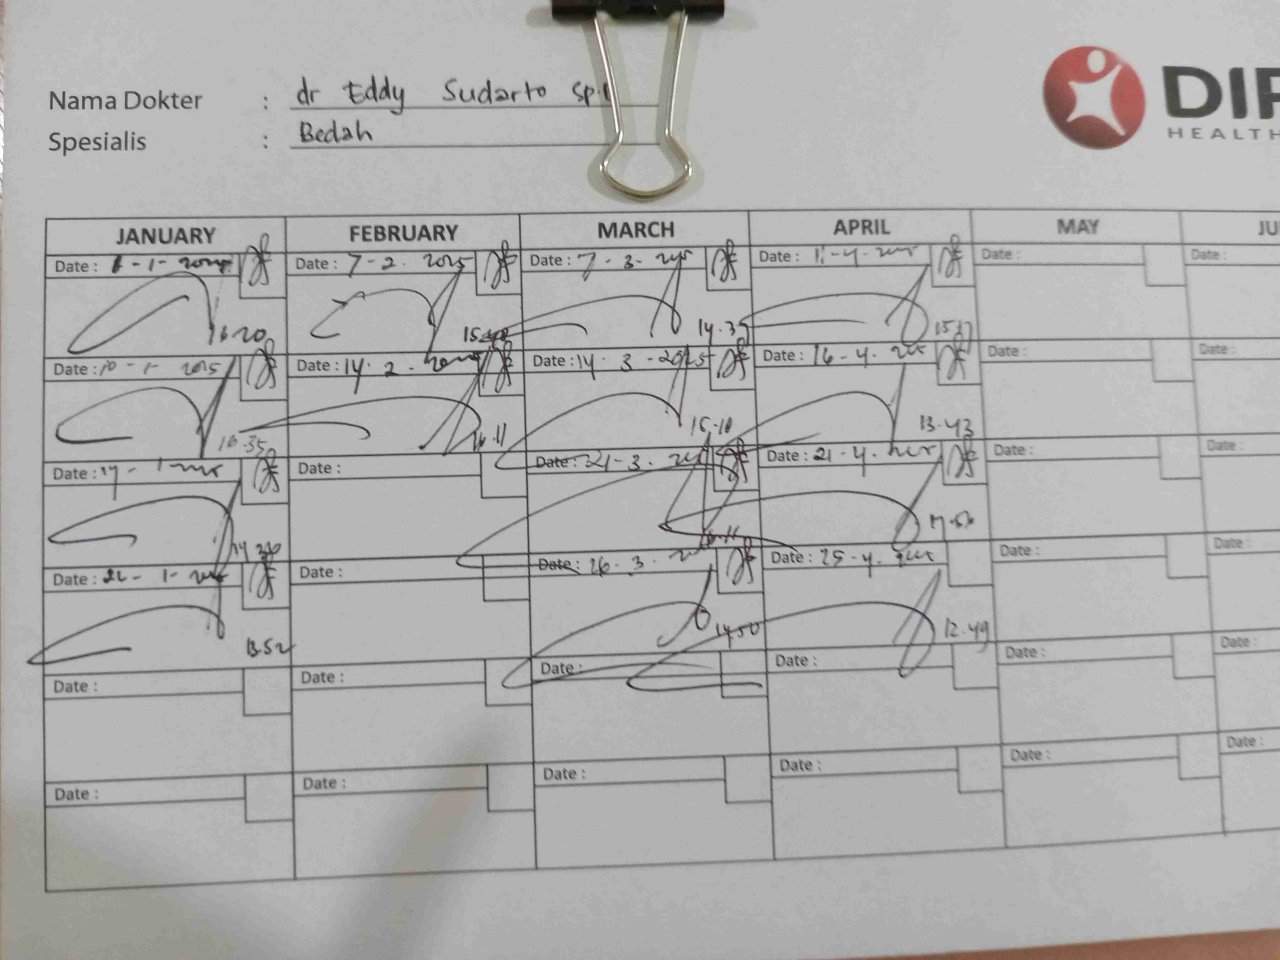 Nama Dokter : dr Eddy Sudarto
Spesialis : Bedah
DI
HEALTH
JANUARY FEBRUARY MARCH APRIL MAY JU
Date : - 1 - Date : 7 - 2 . 2025 Date : 7 - 3 - Date : 11 - 4 - Date : Date :
16.20 15. 14.35 15.17
Date : 10 - 1 - 2025 Date : 14 . 2 . Date : 14 3 - 2025 Date : 16 - 4 . Date : Date :
16.35 16.11 15.10 13.43
Date : 17 - 1 - Date : Date : 21 - 3 . Date : 21 - 4 . Date : Date :
14. 17.56
Date : - 1 - Date : Date : 26 . 3 . Date : 25 - 4 . Date : Date :
13.52 14.50 12.49
Date : Date : Date : Date : Date : Date :
Date : Date : Date : Date : Date : Date :